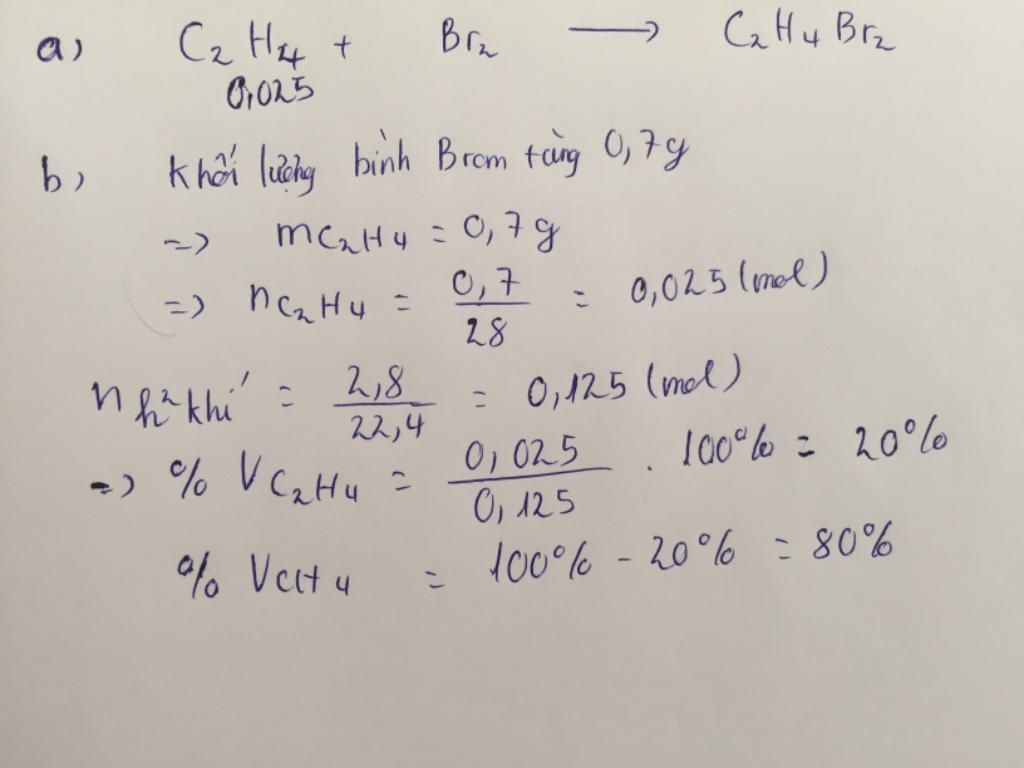 a) C₂H₄ + Br₂ → C₂H₄Br₂
0,025
b) Khối lượng bình Brom tăng 0,7g
=> mC₂H₄ = 0,7g
=> nC₂H₄ = 0,7/28 = 0,025 (mol)
n h² khí = 2,8/22,4 = 0,125 (mol)
=> % VC₂H₄ = 0,025/0,125 . 100% = 20%
% VCH₄ = 100% - 20% = 80%